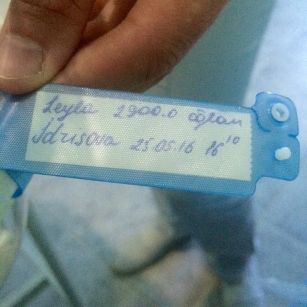 Leyla 2900.0 oğlan
İdrisova 25.05.16 16 10